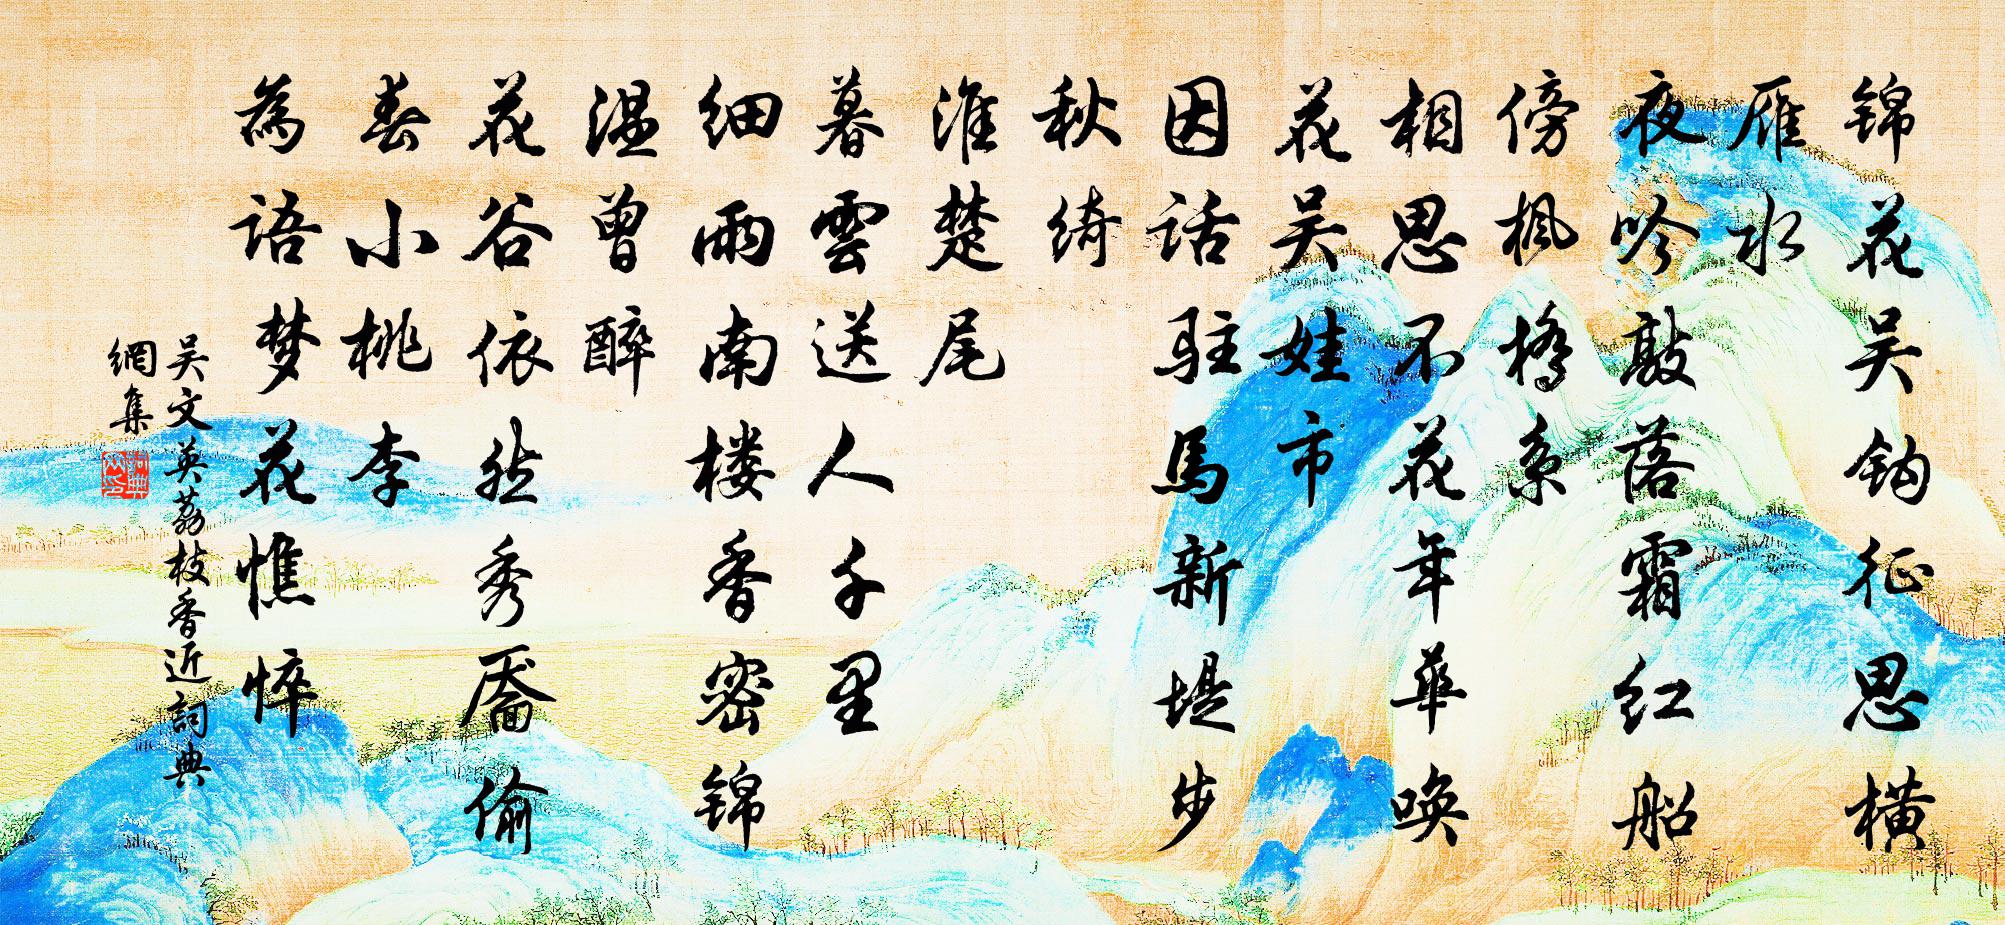 锦花吴钩征思横
雁水
夜吟敲落霜红船
傍枫桥系
相思不花年華唤
花吴娃市
因话驻馬新堤步
秋绮
淮楚尾
暮雲送人千里
细雨南楼香密锦
温曾醉
花谷依然秀靥偷
春小桃李
為语梦花憔悴
吴文英荔枝香近詞典
網集